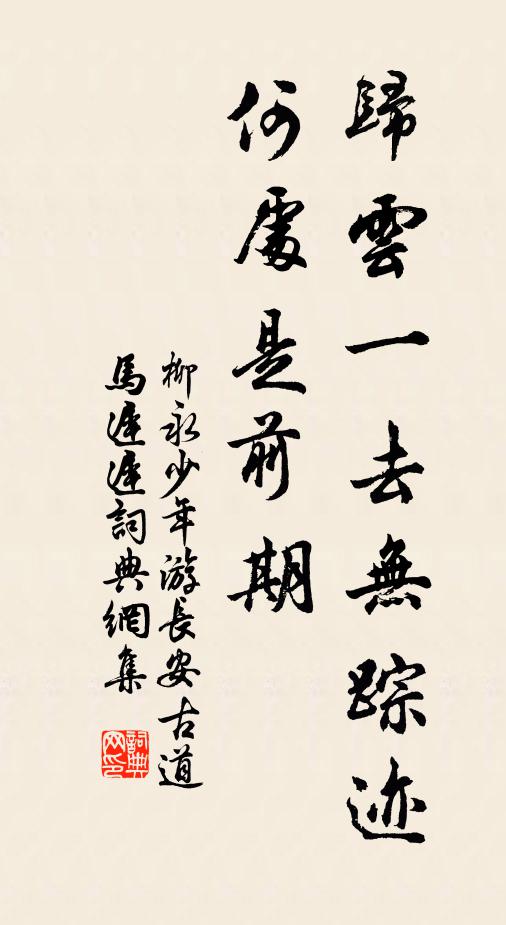 歸雲一去無踪迹
何處是前期
柳永少年游長安古道
馬遲遲詞典網集
詞典网印